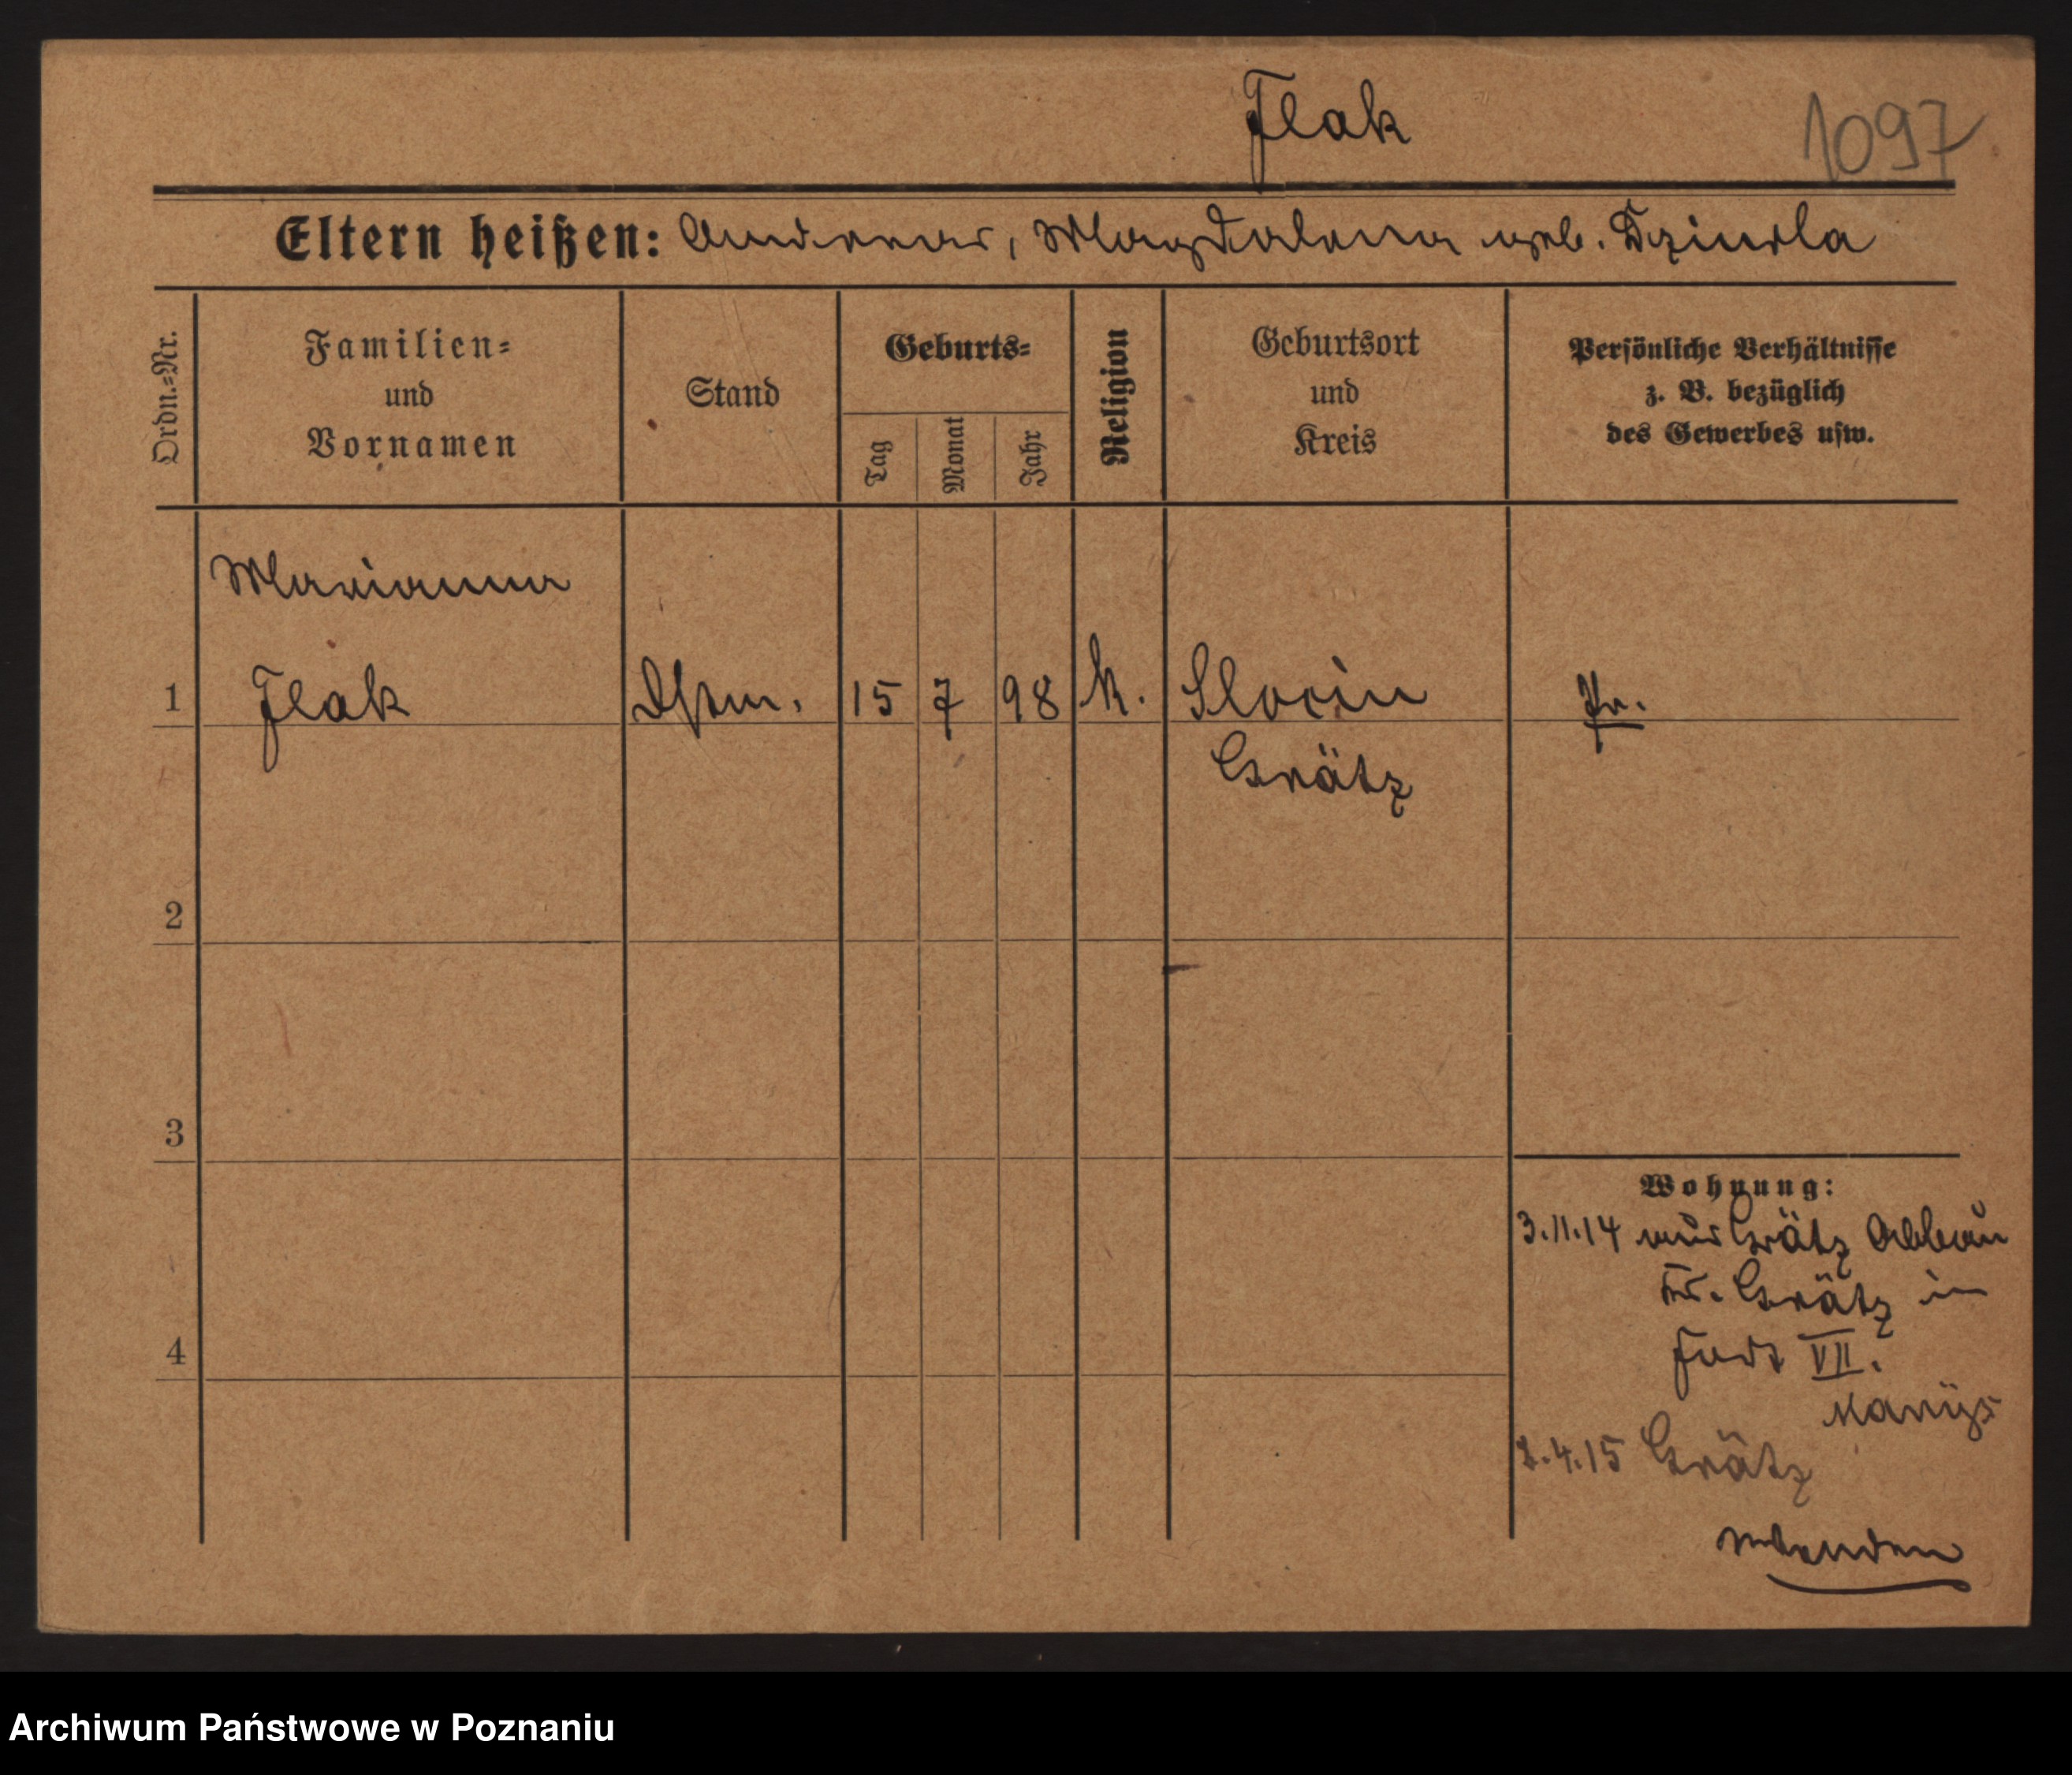 Flak
1097
Eltern heißen: Andreas, Magdalena geb. Dziurla
Ordn.=Nr.
Familien=
und
Vornamen
Stand
Geburts=
Tag
Monat
Jahr
Religion
Geburtsort
und
Kreis
Persönliche Verhältnisse
z. B. bezüglich
des Gewerbes usw.
Marianna
1 Flak Dstm. 15 7 98 k. Slocin Pr.
Grätz
2
3
4
Wohnung:
3.11.14 aus Grätz Abbau
Kr. Grätz in
Fort VII.
4.15 Grätz
wenden
Archiwum Państwowe w Poznaniu